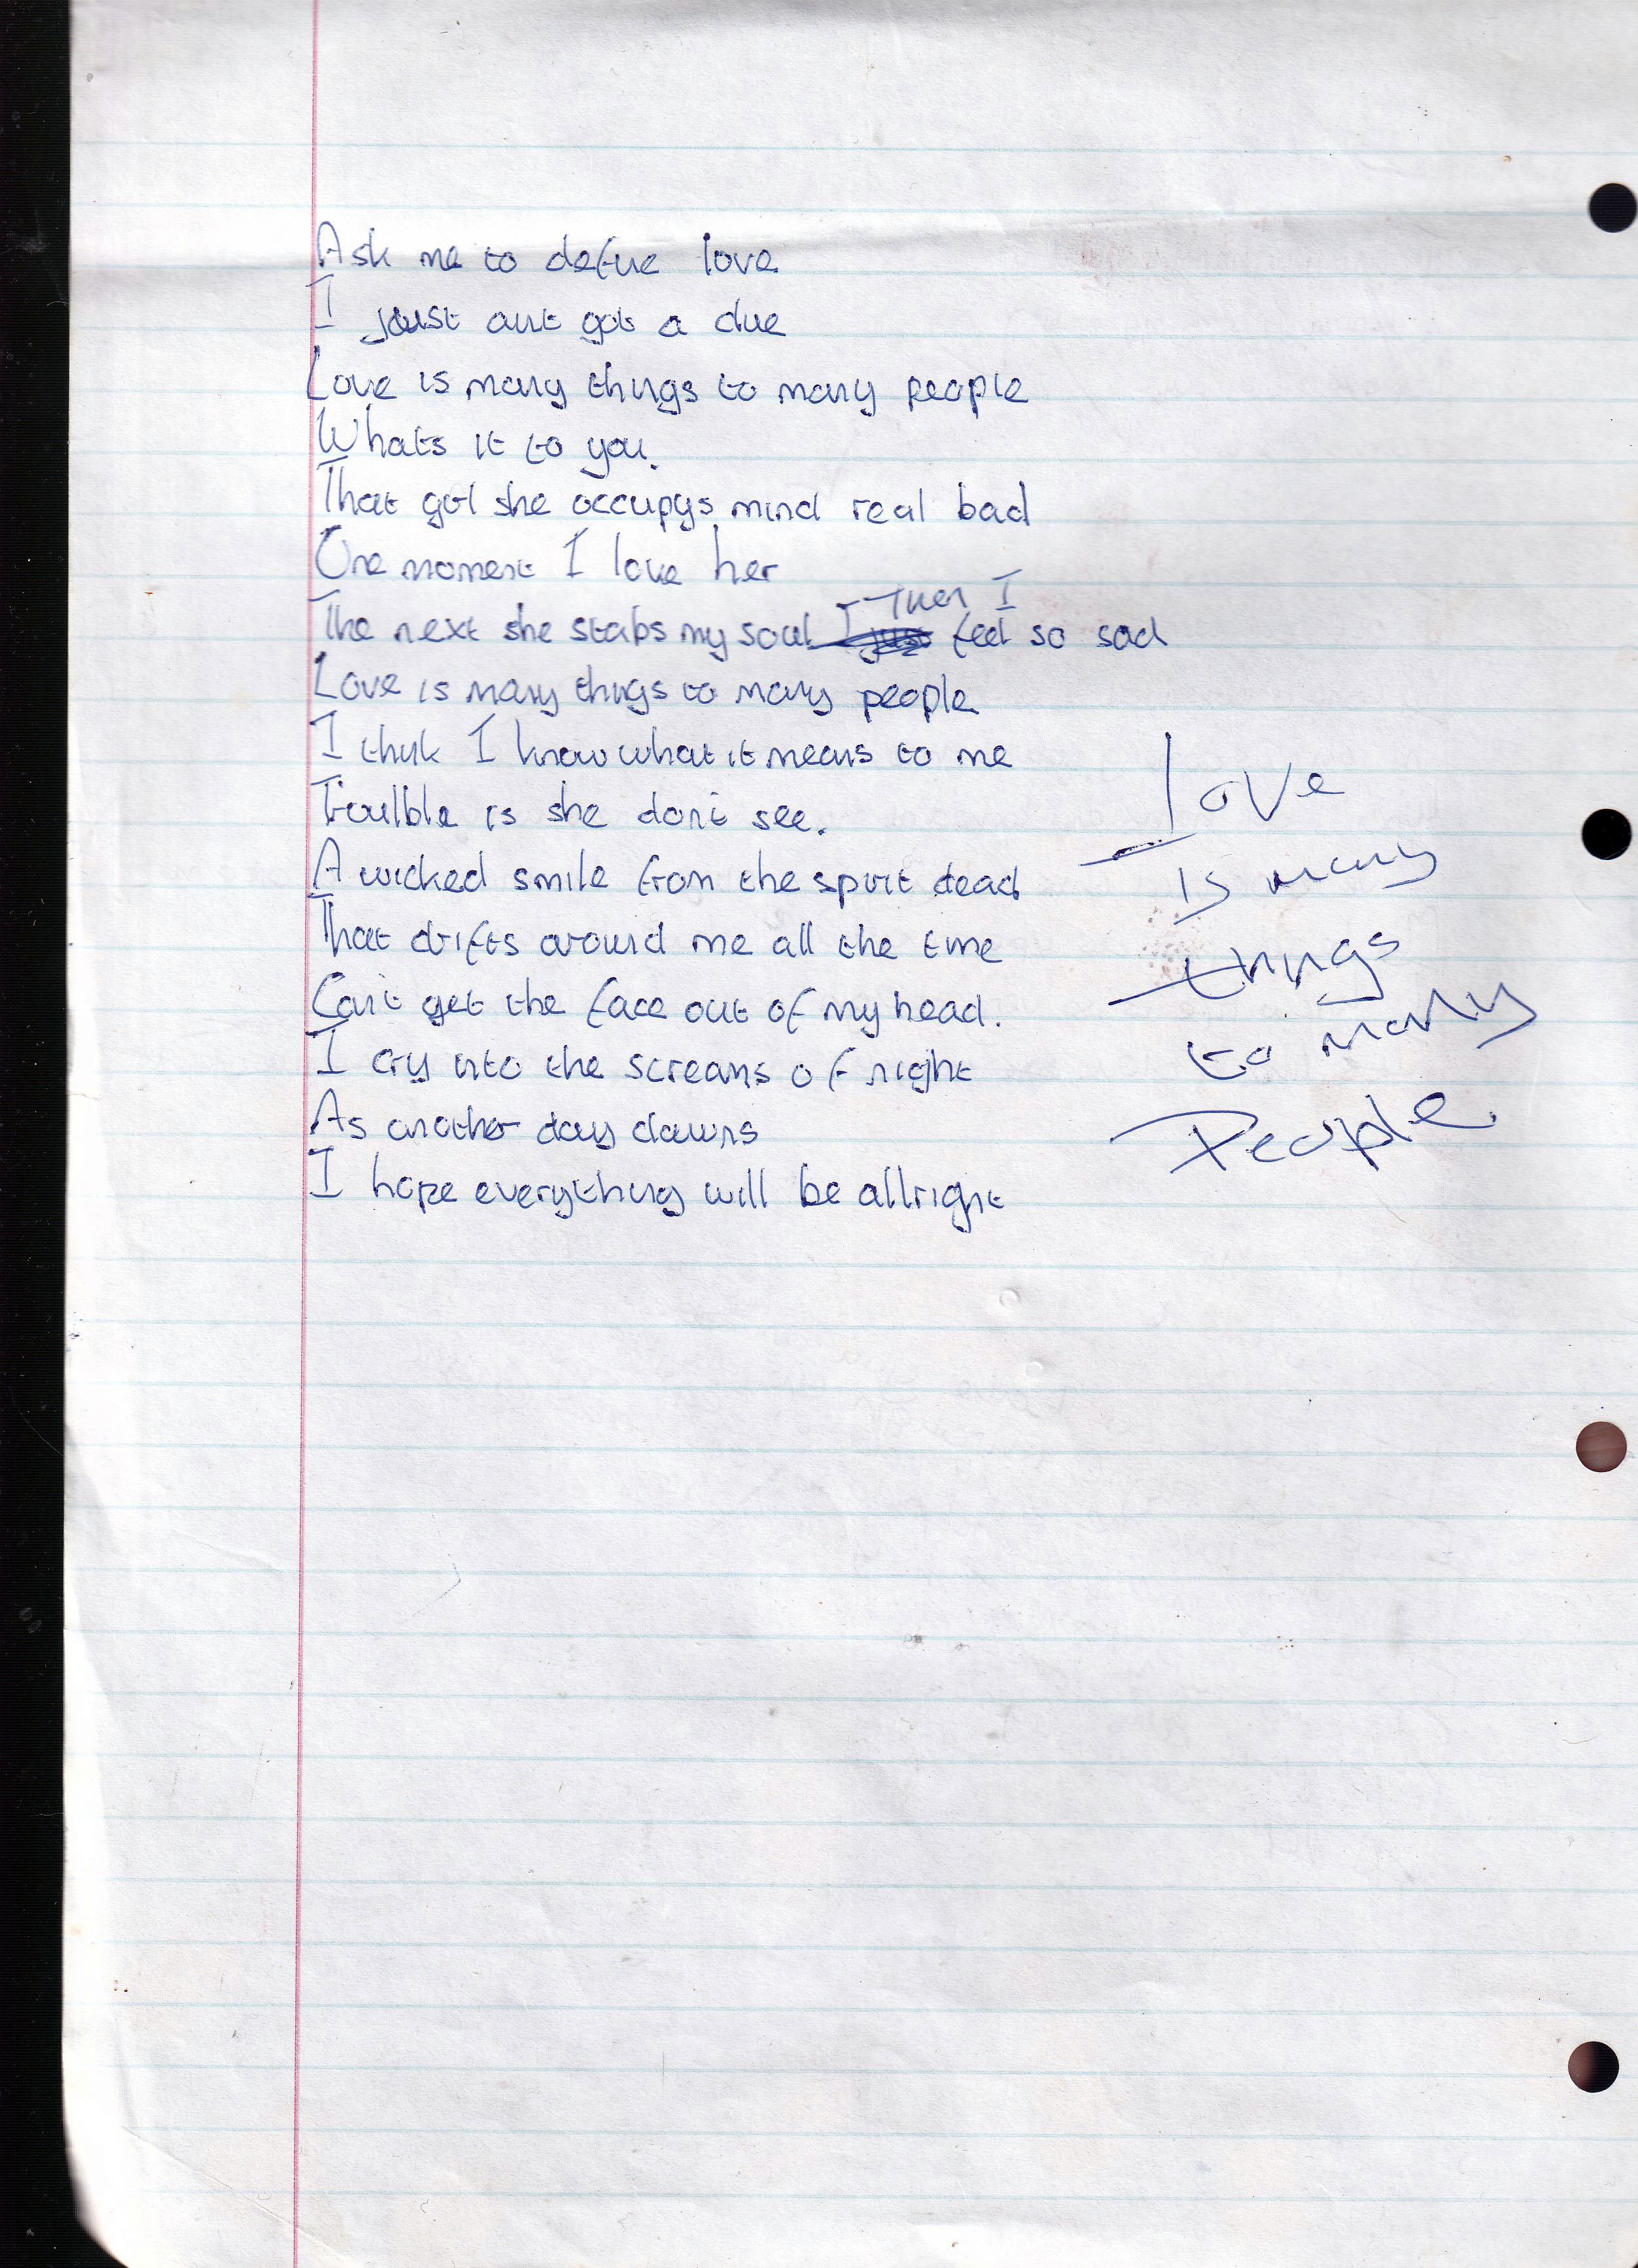 Ask me to define love
I just aint got a clue
Love is many things to many people
Whats it to you.
That girl she occupys mind real bad
One moment I love her
Then I
The next she stabs my soul I just feel so sad
Love is many things to many people
I think I know what it means to me
Troulble is she dont see.
A wicked smile from the spirit dead
That drifts around me all the time
Cant get the face out of my head.
I cry into the screams of night
As another day dawns
I hope everything will be allright
Love
Is many
things
to many
People.